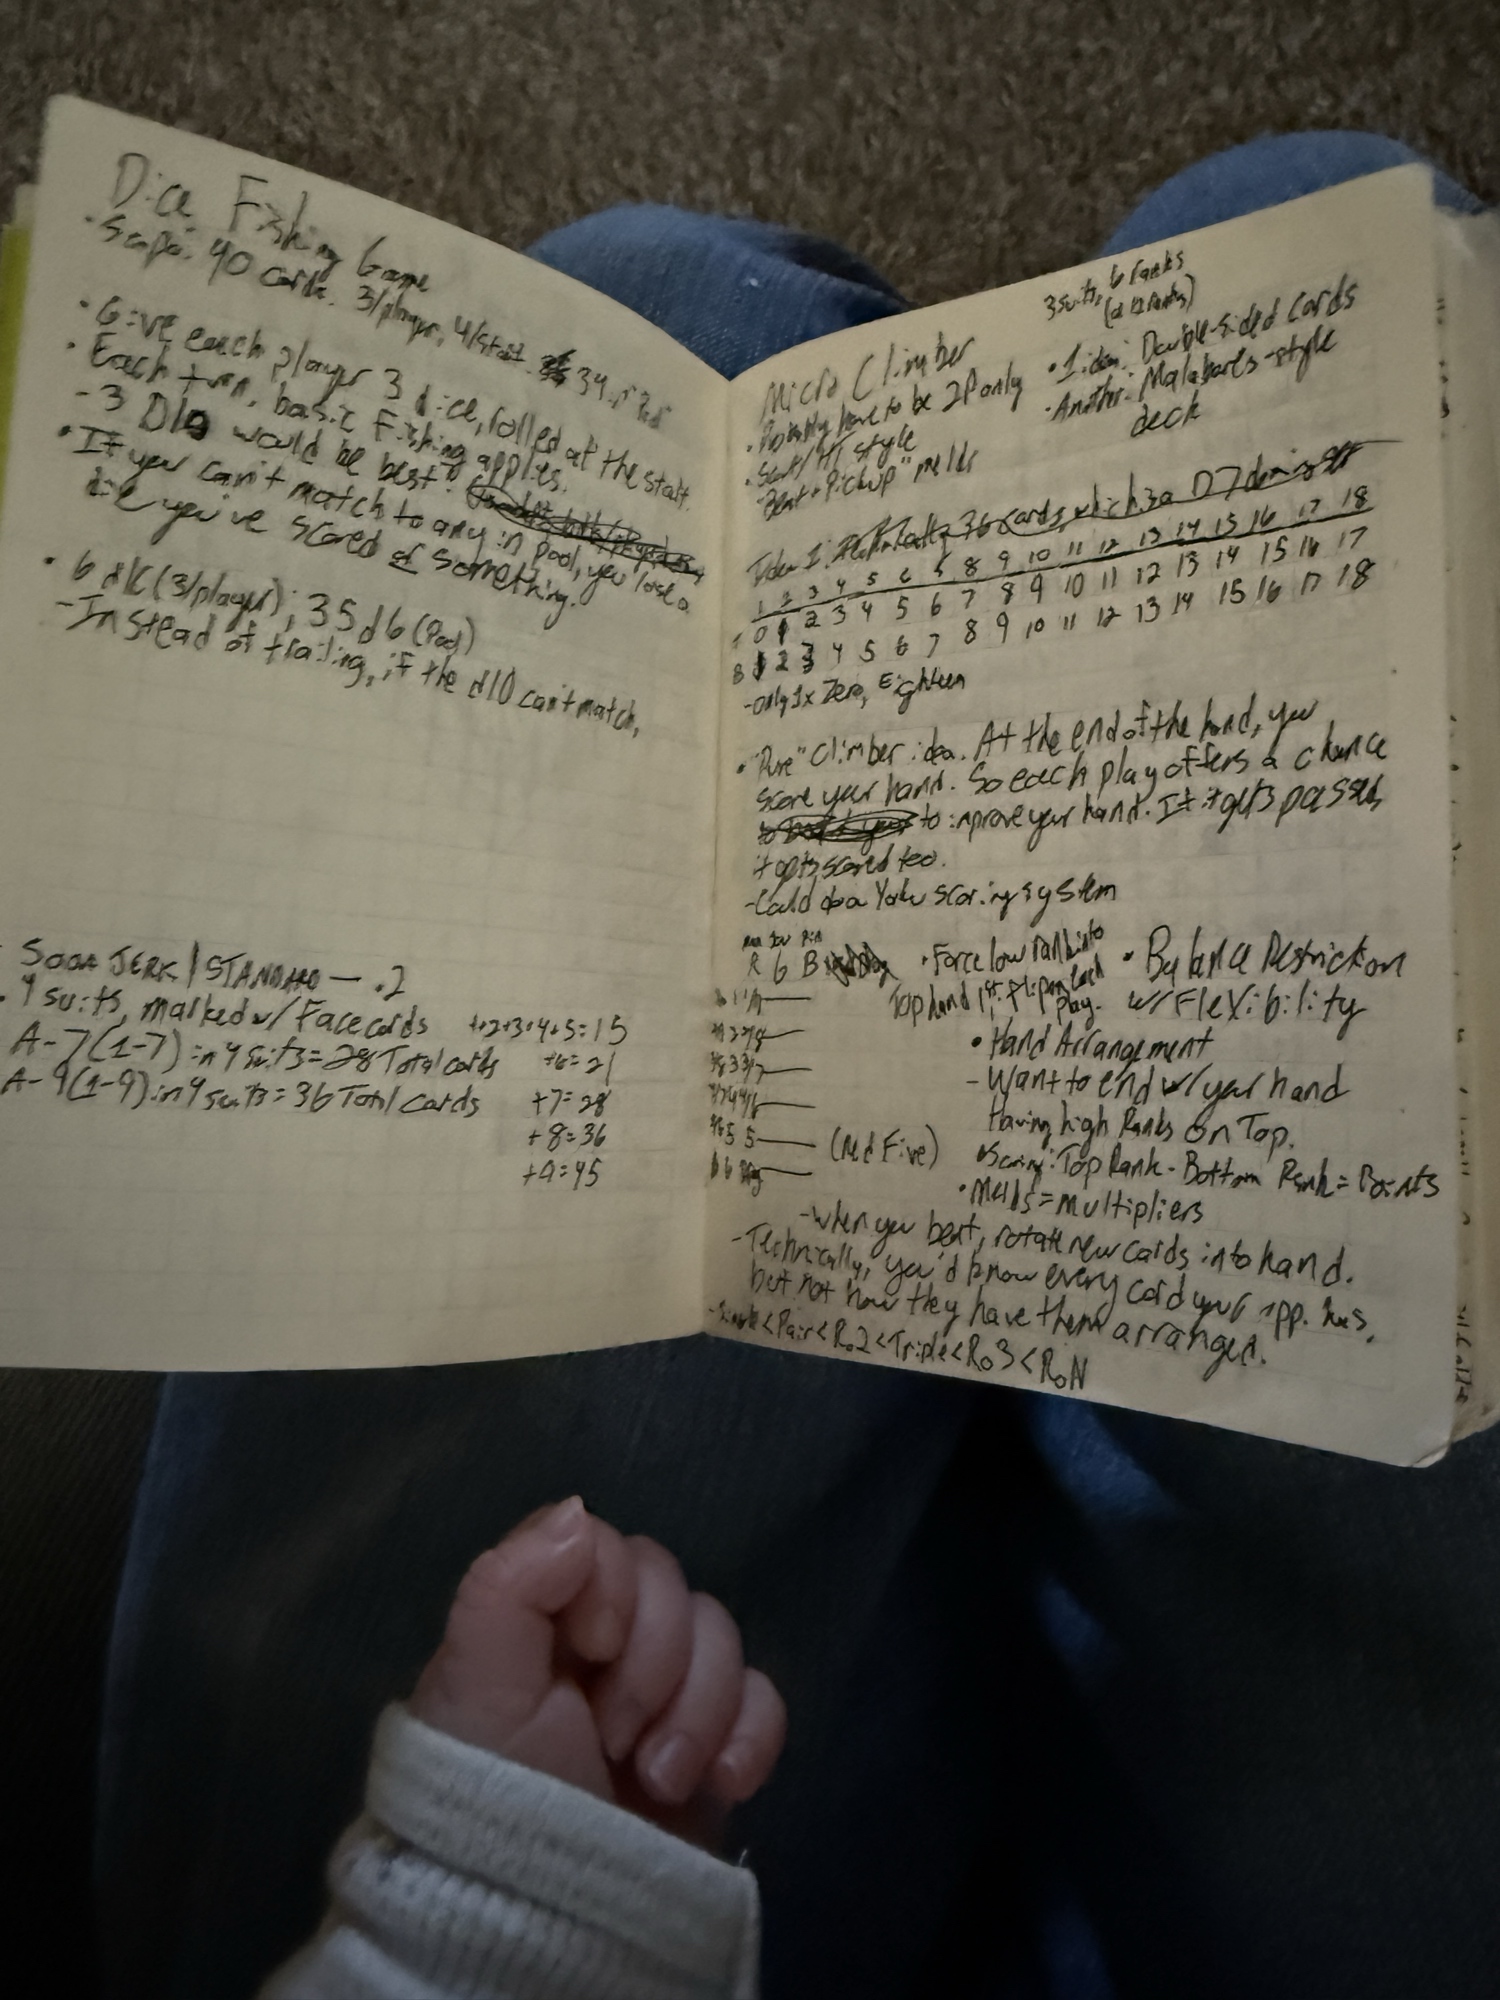 Dice Fishing Game
· Scopa: 40 cards. 3/player, 4/start. 34 in Pool
· Give each player 3 dice, rolled at the start.
· Each turn, basic Fishing applies.
- 3 D10 would be best?
· If you can't match to any in pool, you lose a
die you've scored or something.
· 6 d10 (3/player); 35 d6 (Pool)
- Instead of trailing, if the d10 can't match,
SODA JERK / STANDARD — .2
· 4 suits, marked w/ Face cards
A-7 (1-7) in 4 suits = 28 Total cards
A-9 (1-9) in 4 suits = 36 Total cards
1+2+3+4+5=15
+6=21
+7=28
+8=36
+9=45
3 suits, 6 ranks
Micro Climber
· Probably have to be 2P only
· Scout/ style
- "Beat + Pickup" melds
· 1 idea: Double-sided cards
· Another: Malabares-style
deck
Idea 1: 36 cards, which is a D7 domino set
1 2 3 4 5 6 8 9 10 11 12 13 14 15 16 17 18
T 0 1 2 3 4 5 6 7 8 9 10 11 12 13 14 15 16 17
B 1 2 3 4 5 6 7 8 9 10 11 12 13 14 15 16 17 18
- only 1x Zero, Eighteen
· "Pure" Climber idea. At the end of the hand, you
score your hand. So each play offers a chance
to improve your hand. If it gets passed
it gets scored too.
- Could do a Yaku scoring system
R G B
(Red Five)
· Force low rank into
Top hand 1st, flip on each
play.
· Balance Restriction
w/ Flexibility
· Hand Arrangement
- Want to end w/ your hand
Having high Ranks on Top.
· Scoring: Top Rank - Bottom Rank = Points
· Melds = multipliers
- When you beat, rotate new cards into hand.
- Technically, you'd know every card your opp. has,
but not how they have them arranged.
- Single < Pair < Ro2 < Triple < Ro3 < RoN